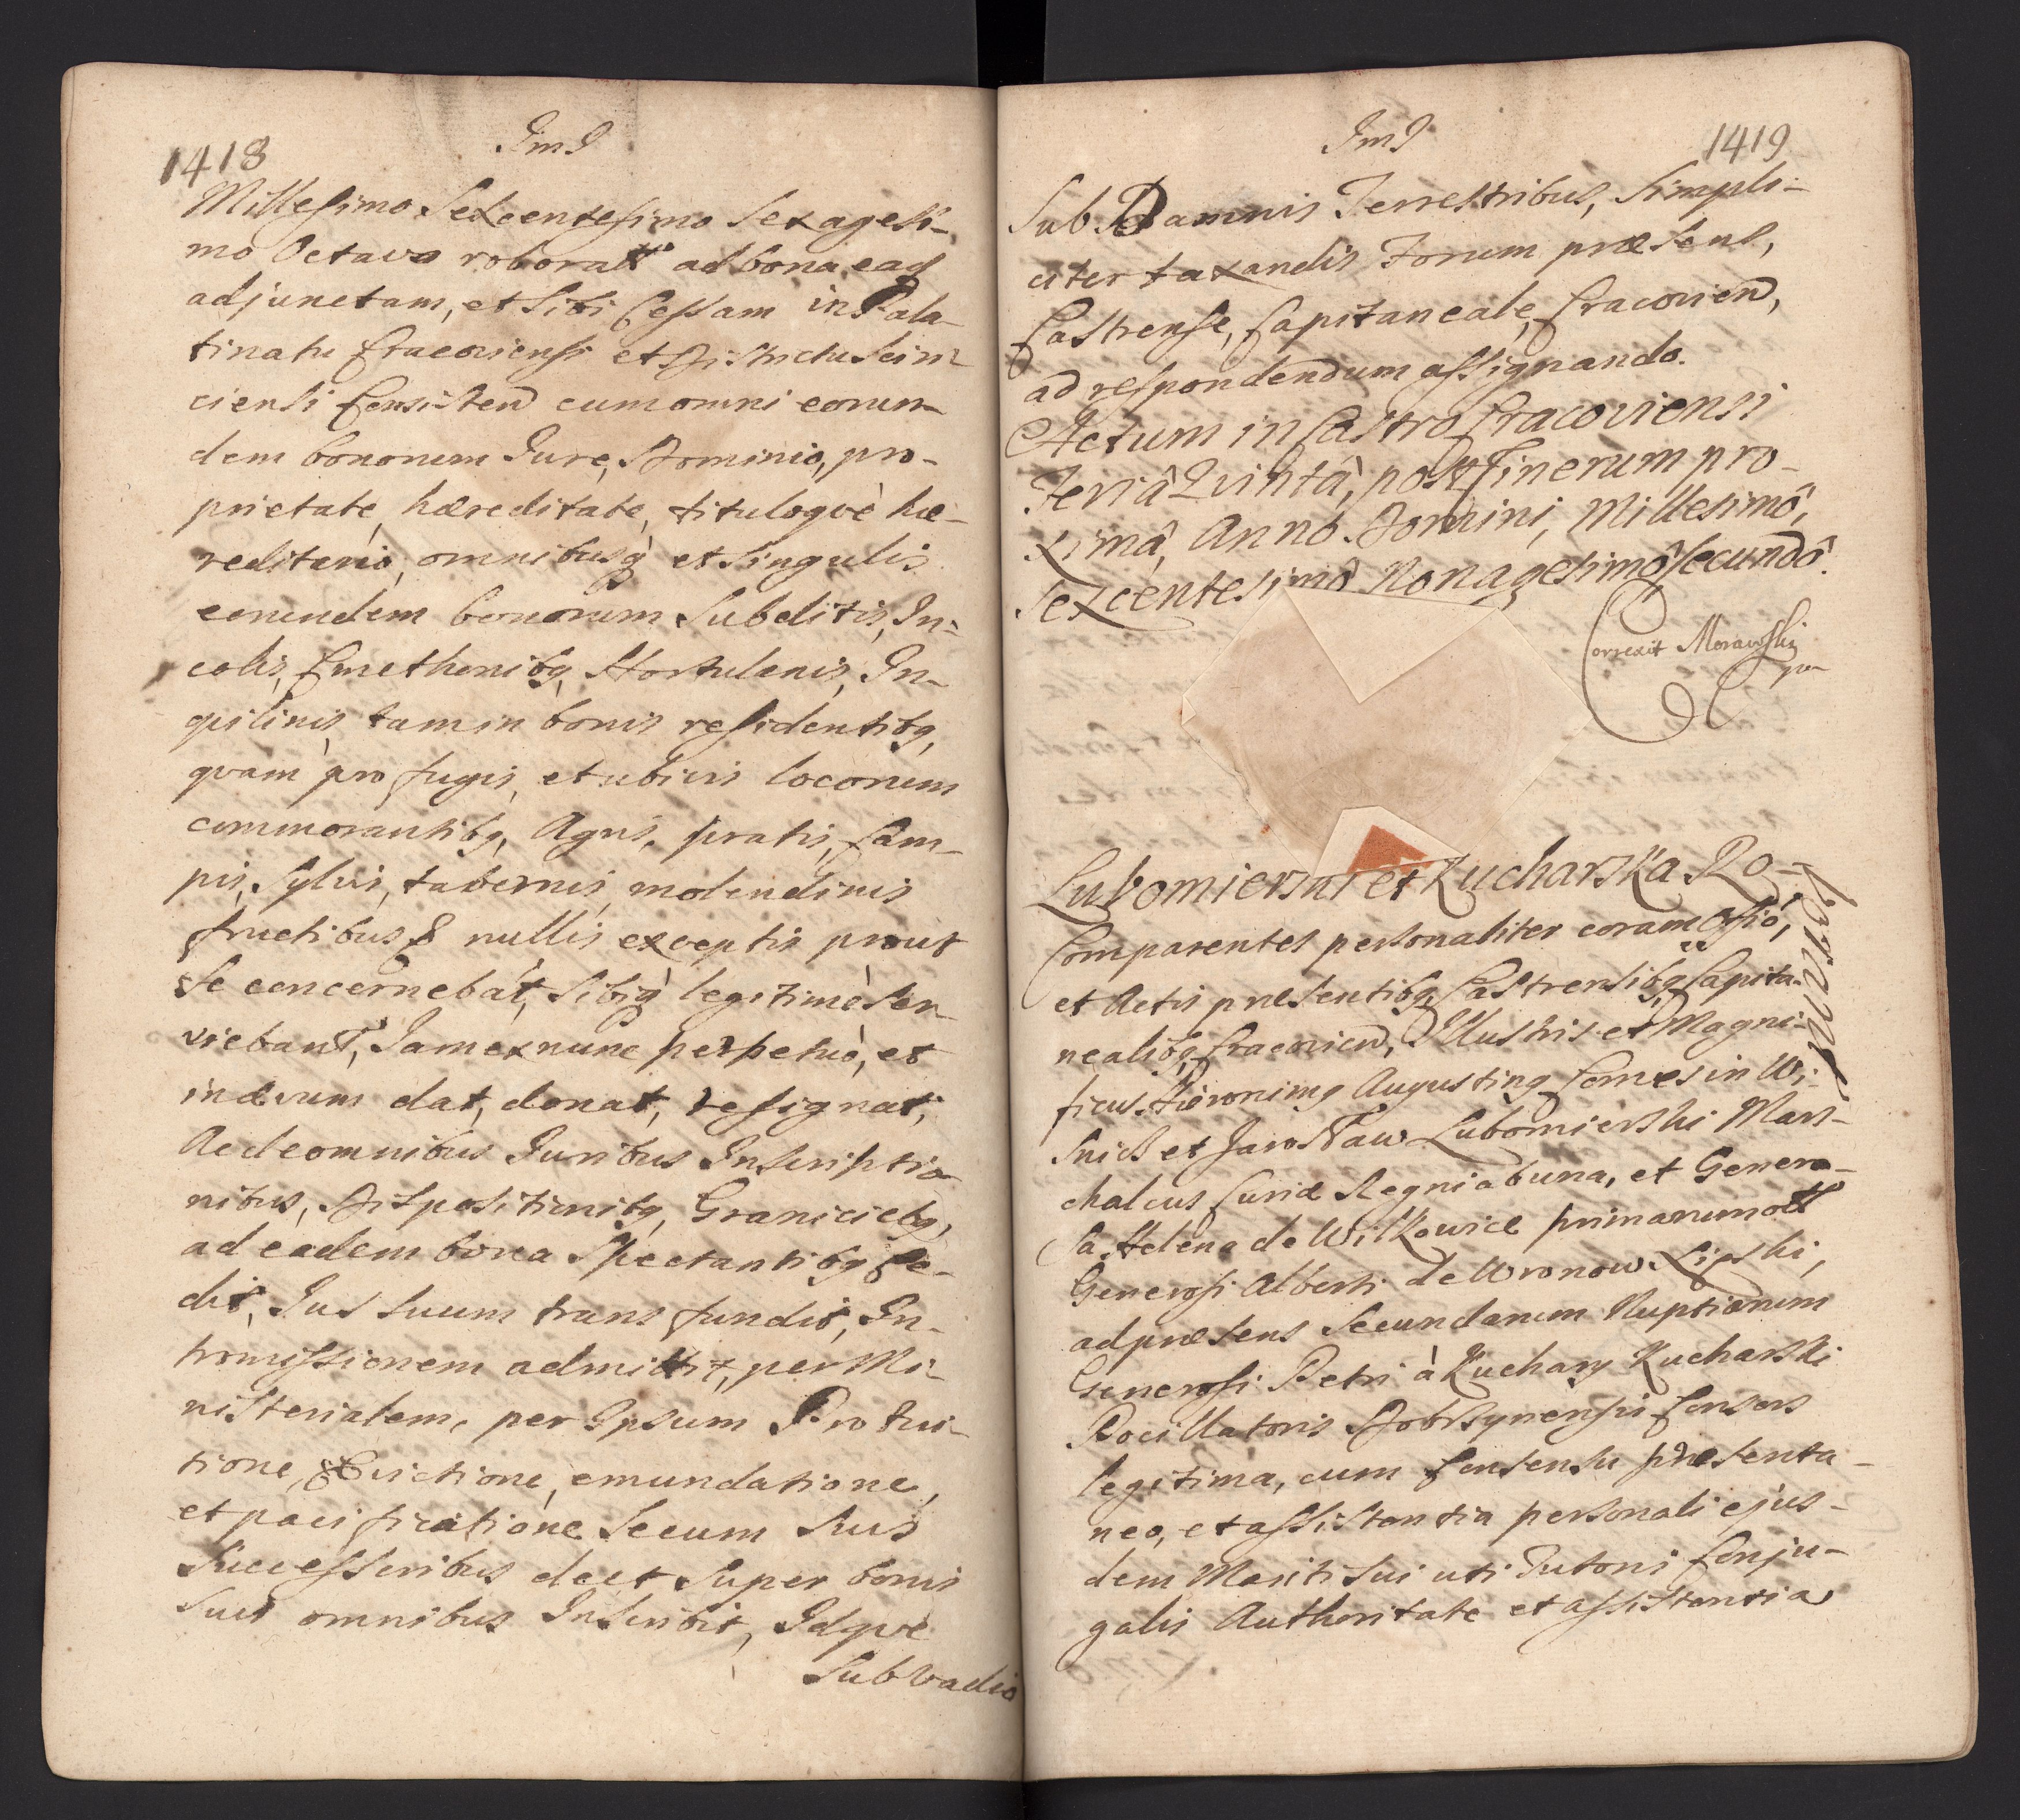 1418
ImJ
Millesimo Sexcentesimo Sexagesi-
mo Octavo roboratt ad bona ead
adjunctam, et Sibi Cessam in Pala-
tinatu Cracoviensi et Districtu Scin-
ciensi Consisten cum omni eorun-
dem bonorum Jure, Dominio, pro-
prietate, hæreditate, tituloqvè hæ-
reditario, omnibusq et Singulis
eorundem bonorum Subditis, In-
colis, Cmethonibq, Hortulanis, In-
qvilinis, tam in bonis residentibq,
qvam pro fugis, et ubivis locorum
commorantibq, Agris, pratis, Cam-
pis, Sylvis, tabernis, molendinis
fructibus & nullis exceptis prout
Se concernebat, Sibiq legitimè Ser-
viebant, Jam ex nunc perpetuò, et
in ævum dat, donat, resignat,
Ac de omnibus Juribus Inscriptio-
nibus, Dispositionibq, Graniciebq,
ad eadem bona Spectantibq Ce-
dit, Jus Suum trans fundit, In-
tromissionem admittit, per Mi-
nisterialem, per Ipsum Pro Tui-
tione, Evictione, emundatione,
et pacificatione Secum Suis
Successoribus de et Super bonis
Suis omnibus Inscribit, Idqvè
Sub vadio
ImJ
1419
Sub Damnis Terrestribus, Simpli-
citer taxandis Forum præsens,
Castrense, Capitaneale, Cracovien,
ad respondendum assignando.
Actum in Castro Cracoviensi
Feriâ Qvintâ, post Cinerum pro-
ximâ, Anno Domini, Millesimô,
Sexcentesimô Nonagesimô Secundô.
Correxit Morawski
Lubomierski et Kucharska Ro-
borant
Comparentes personaliter coram Offiô,
et Actis præsentibq, Castrensibq, Capita-
nealibq, Cracovien, Illustris et Magni-
ficus Hieronimq Augustinq Comes in Wi-
snicz et Jarosław Lubomierski Mars-
chalcus Curiæ Regni ab una, et Genero-
sa Helena de Wilkowice primarum ott
Generosi Alberti de Wronow Lipski,
ad præsens Secundarum Nuptiarum
Generosi Petri à Kuchary Kucharski
Pocillatoris Dobrzynensis Consors
legitima, cum Consensu præsenta-
neo, et assistentia personali ejus-
dem Mariti Sui uti Tutoris Conju-
galis Authoritate et assistentia